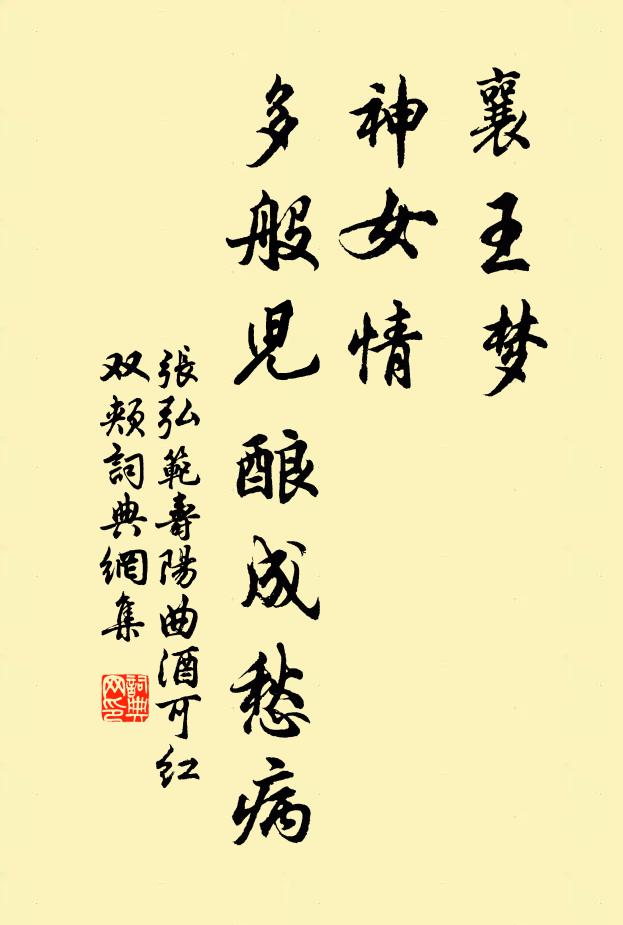 襄王梦
神女情
多般児酿成愁病
張弘範壽陽曲酒可红
双頰詞典網集
詞典网印